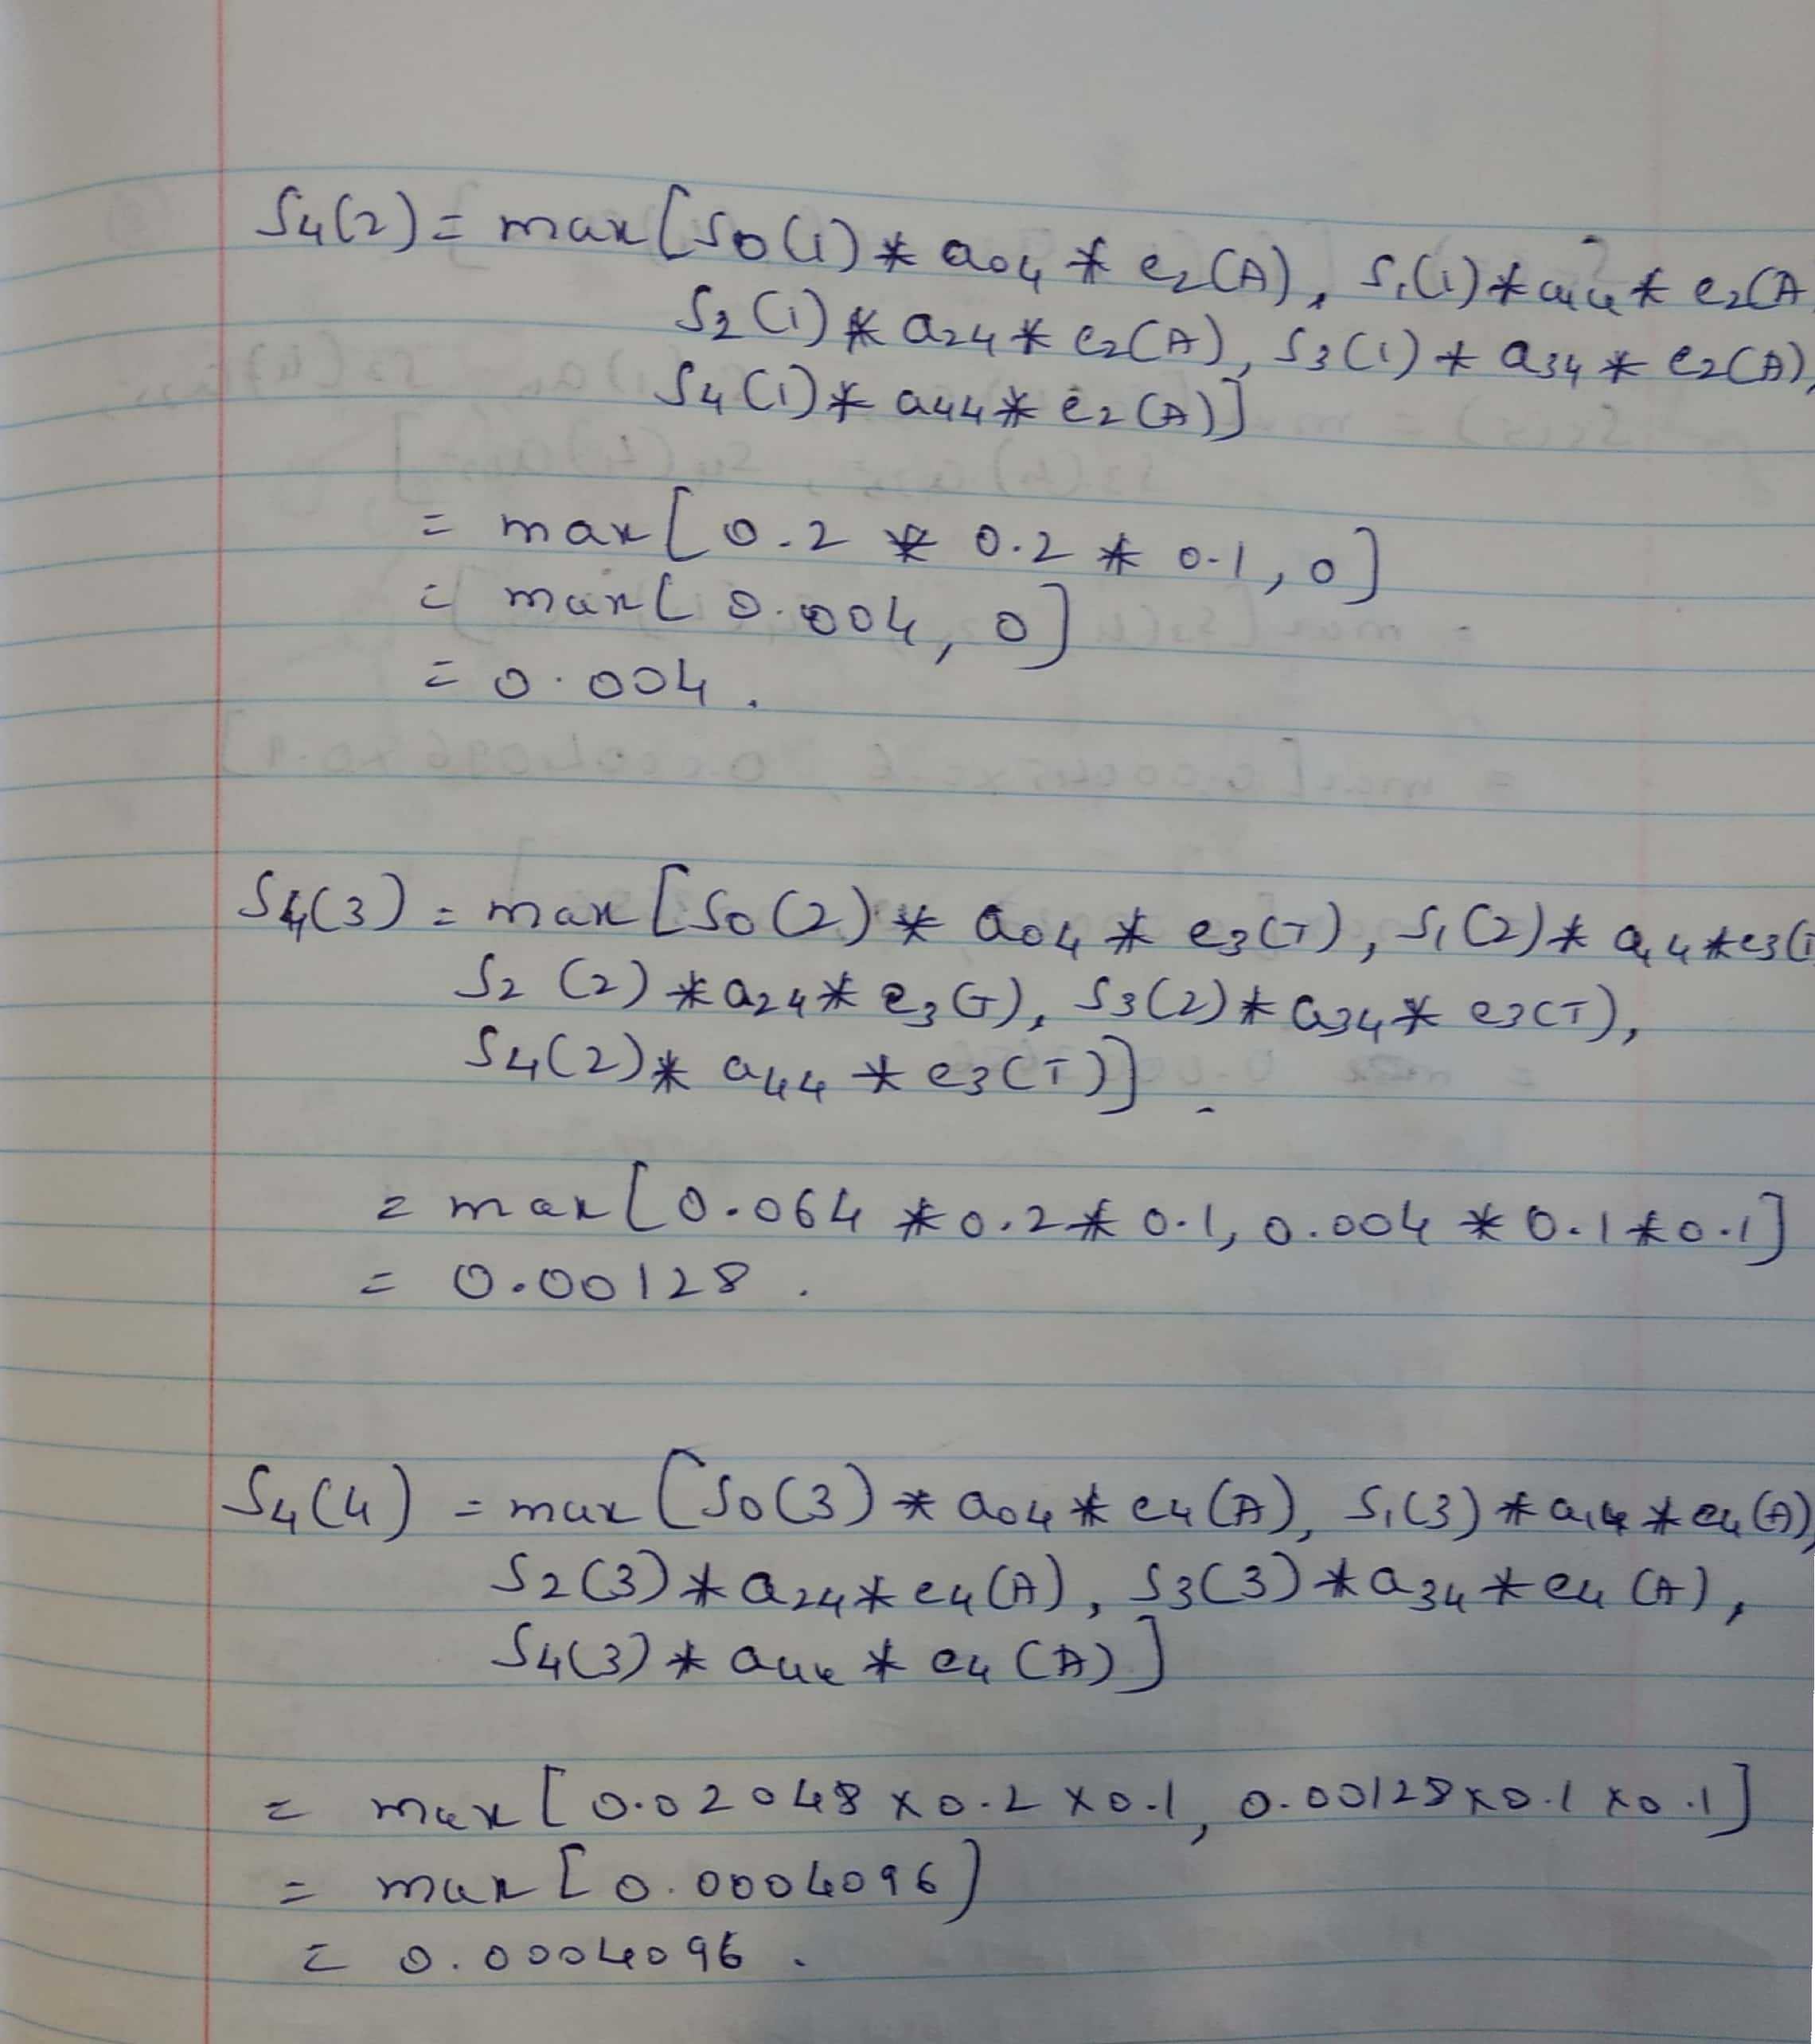 S4(2) = max[S0(1) * a04 * e2(A), S1(1) * a14 * e2(A
S2(1) * a24 * e2(A), S3(1) * a34 * e2(A),
S4(1) * a44 * e2(A)]
= max[0.2 * 0.2 * 0.1, 0]
= max[0.004, 0]
= 0.004.
S4(3) = max[S0(2) * a04 * e3(T), S1(2) * a14 * e3(T
S2(2) * a24 * e3(T), S3(2) * a34 * e3(T),
S4(2) * a44 * e3(T)]
= max[0.064 * 0.2 * 0.1, 0.004 * 0.1 * 0.1]
= 0.00128.
S4(4) = max[S0(3) * a04 * e4(A), S1(3) * a14 * e4(A),
S2(3) * a24 * e4(A), S3(3) * a34 * e4(A),
S4(3) * a44 * e4(A)]
= max[0.02048 x 0.2 x 0.1, 0.00128 x 0.1 x 0.1]
= max[0.0004096]
= 0.0004096.